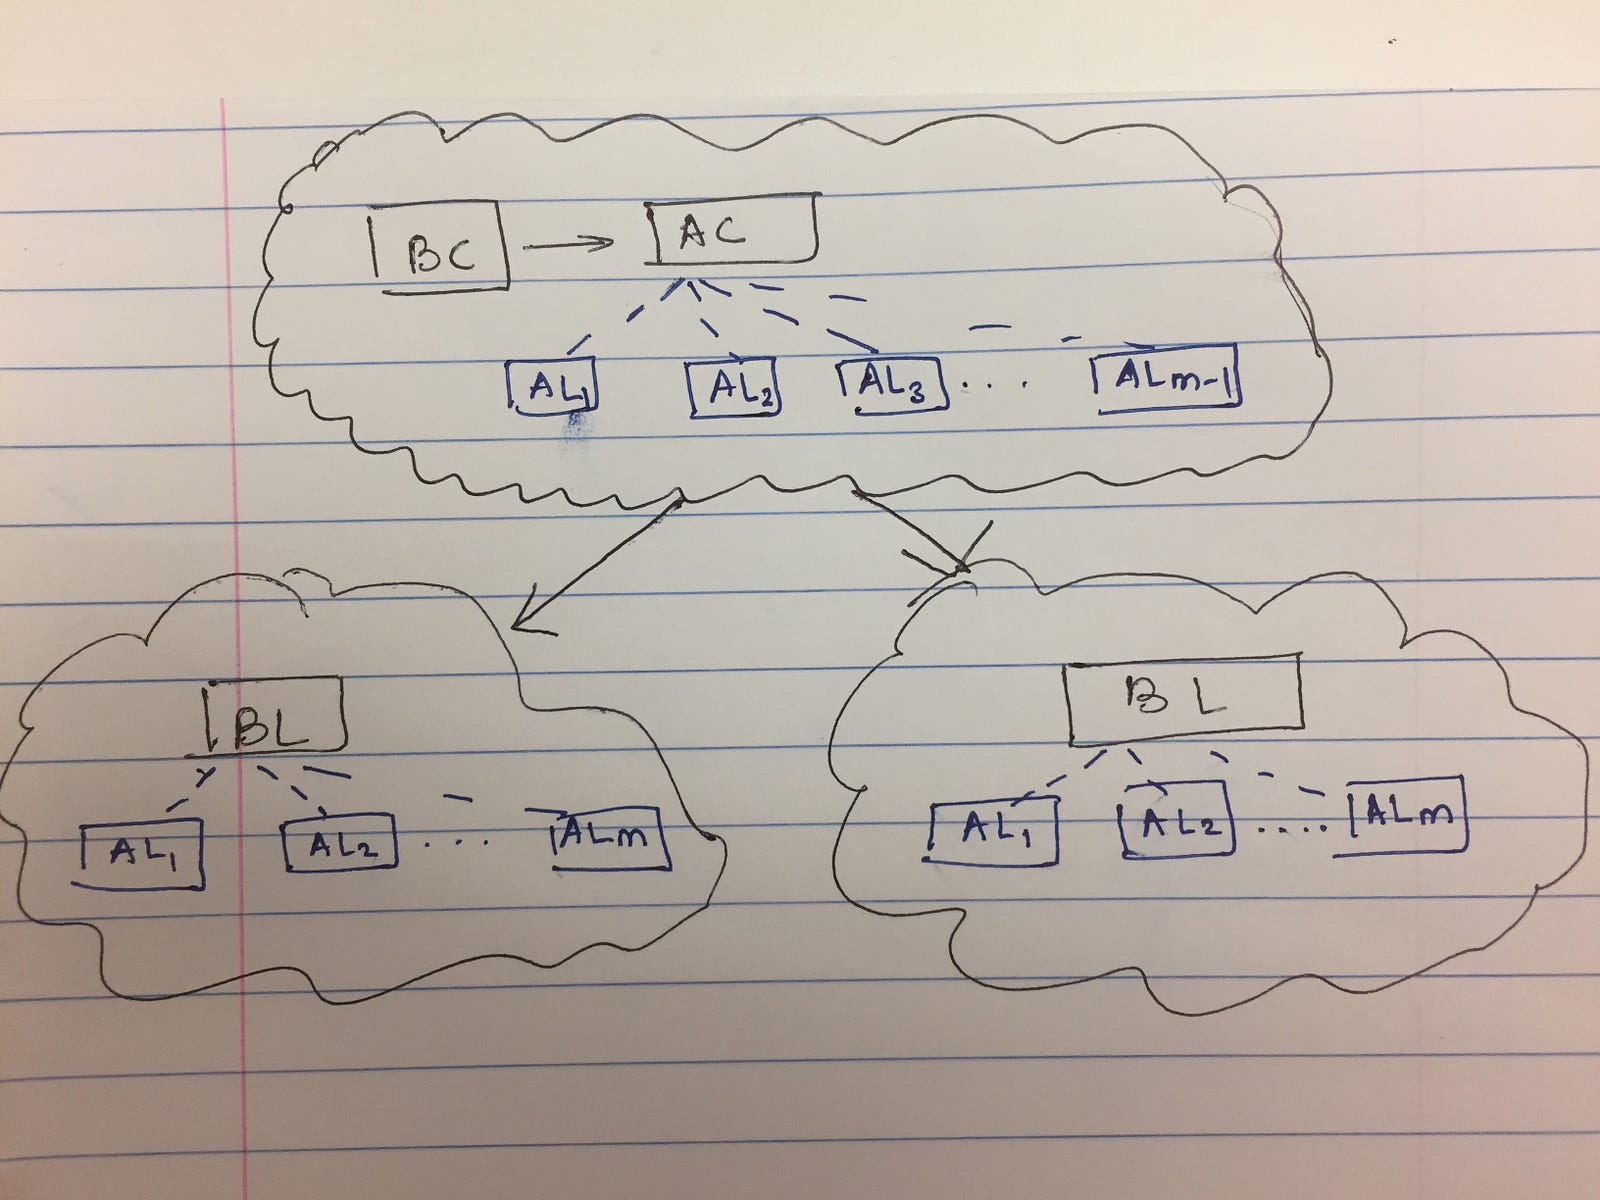 BC → AC
AL1 AL2 AL3 ... ALm-1
BL BL
AL1 AL2 ... ALm AL1 AL2 ..... ALm